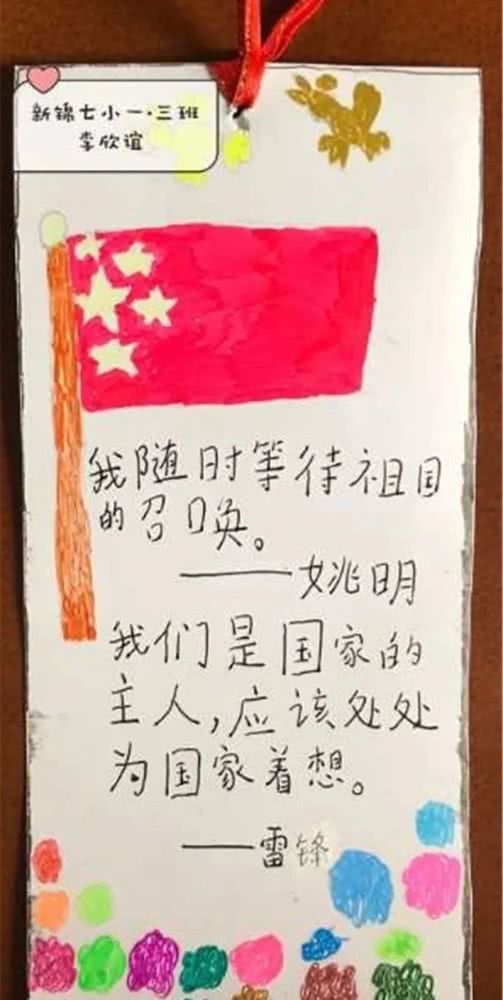 新锦七小一·三班
李欣谊
我随时等待祖国
的召唤。
——姚明
我们是国家的
主人,应该处处
为国家着想。
——雷锋